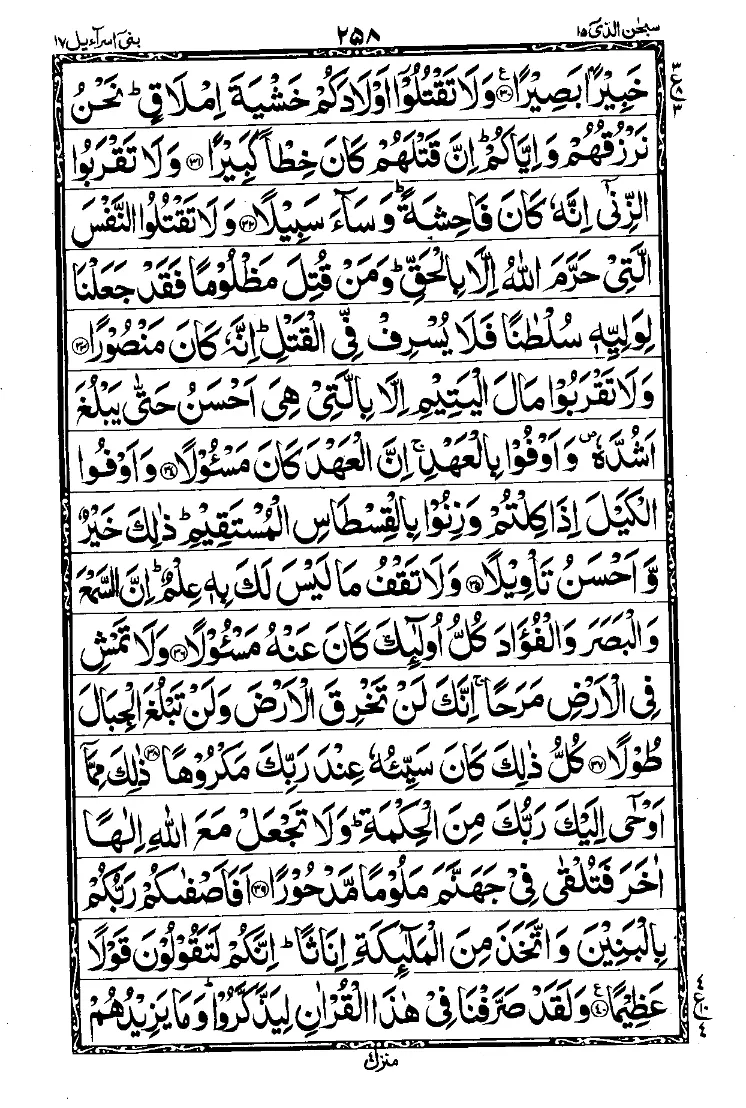 سبحٰن الذی ١٥
٢٥٨
بنی اسرآءیل ١٧
خَبِیْرًۢا بَصِیْرًا ﴿۳۰﴾ع وَلَا تَقْتُلُوْۤا اَوْلَادَكُمْ خَشْیَةَ اِمْلَاقٍ ؕ نَحْنُ
نَرْزُقُهُمْ وَ اِیَّاكُمْ ؕ اِنَّ قَتْلَهُمْ كَانَ خِطْاً كَبِیْرًا ﴿۳۱﴾ وَلَا تَقْرَبُوا
الزِّنٰۤی اِنَّهٗ كَانَ فَاحِشَةً ؕ وَ سَآءَ سَبِیْلًا ﴿۳۲﴾ وَلَا تَقْتُلُوا النَّفْسَ
الَّتِیْ حَرَّمَ اللّٰهُ اِلَّا بِالْحَقِّ ؕ وَمَنْ قُتِلَ مَظْلُوْمًا فَقَدْ جَعَلْنَا
لِوَلِیِّهٖ سُلْطٰنًا فَلَا یُسْرِفْ فِّی الْقَتْلِ ؕ اِنَّهٗ كَانَ مَنْصُوْرًا ﴿۳۳﴾
وَلَا تَقْرَبُوْا مَالَ الْیَتِیْمِ اِلَّا بِالَّتِیْ هِیَ اَحْسَنُ حَتّٰی یَبْلُغَ
اَشُدَّهٗ ۪ وَ اَوْفُوْا بِالْعَهْدِ ۚ اِنَّ الْعَهْدَ كَانَ مَسْـُٔوْلًا ﴿۳۴﴾ وَ اَوْفُوا
الْكَیْلَ اِذَا كِلْتُمْ وَ زِنُوْا بِالْقِسْطَاسِ الْمُسْتَقِیْمِ ؕ ذٰلِكَ خَیْرٌ
وَّ اَحْسَنُ تَاْوِیْلًا ﴿۳۵﴾ وَلَا تَقْفُ مَا لَیْسَ لَكَ بِهٖ عِلْمٌ ؕ اِنَّ السَّمْعَ
وَ الْبَصَرَ وَ الْفُؤَادَ كُلُّ اُولٰٓئِكَ كَانَ عَنْهُ مَسْـُٔوْلًا ﴿۳۶﴾ وَلَا تَمْشِ
فِی الْاَرْضِ مَرَحًا ۚ اِنَّكَ لَنْ تَخْرِقَ الْاَرْضَ وَلَنْ تَبْلُغَ الْجِبَالَ
طُوْلًا ﴿۳۷﴾ كُلُّ ذٰلِكَ كَانَ سَیِّئُهٗ عِنْدَ رَبِّكَ مَكْرُوْهًا ﴿۳۸﴾ ذٰلِكَ مِمَّاۤ
اَوْحٰۤی اِلَیْكَ رَبُّكَ مِنَ الْحِكْمَةِ ؕ وَلَا تَجْعَلْ مَعَ اللّٰهِ اِلٰهًا
اٰخَرَ فَتُلْقٰی فِیْ جَهَنَّمَ مَلُوْمًا مَّدْحُوْرًا ﴿۳۹﴾ اَفَاَصْفٰىكُمْ رَبُّكُمْ
بِالْبَنِیْنَ وَ اتَّخَذَ مِنَ الْمَلٰٓئِكَةِ اِنَاثًا ؕ اِنَّكُمْ لَتَقُوْلُوْنَ قَوْلًا
عَظِیْمًا ﴿۴۰﴾ع وَ لَقَدْ صَرَّفْنَا فِیْ هٰذَا الْقُرْاٰنِ لِیَذَّكَّرُوْا ؕ وَمَا یَزِیْدُهُمْ
منزل ٤